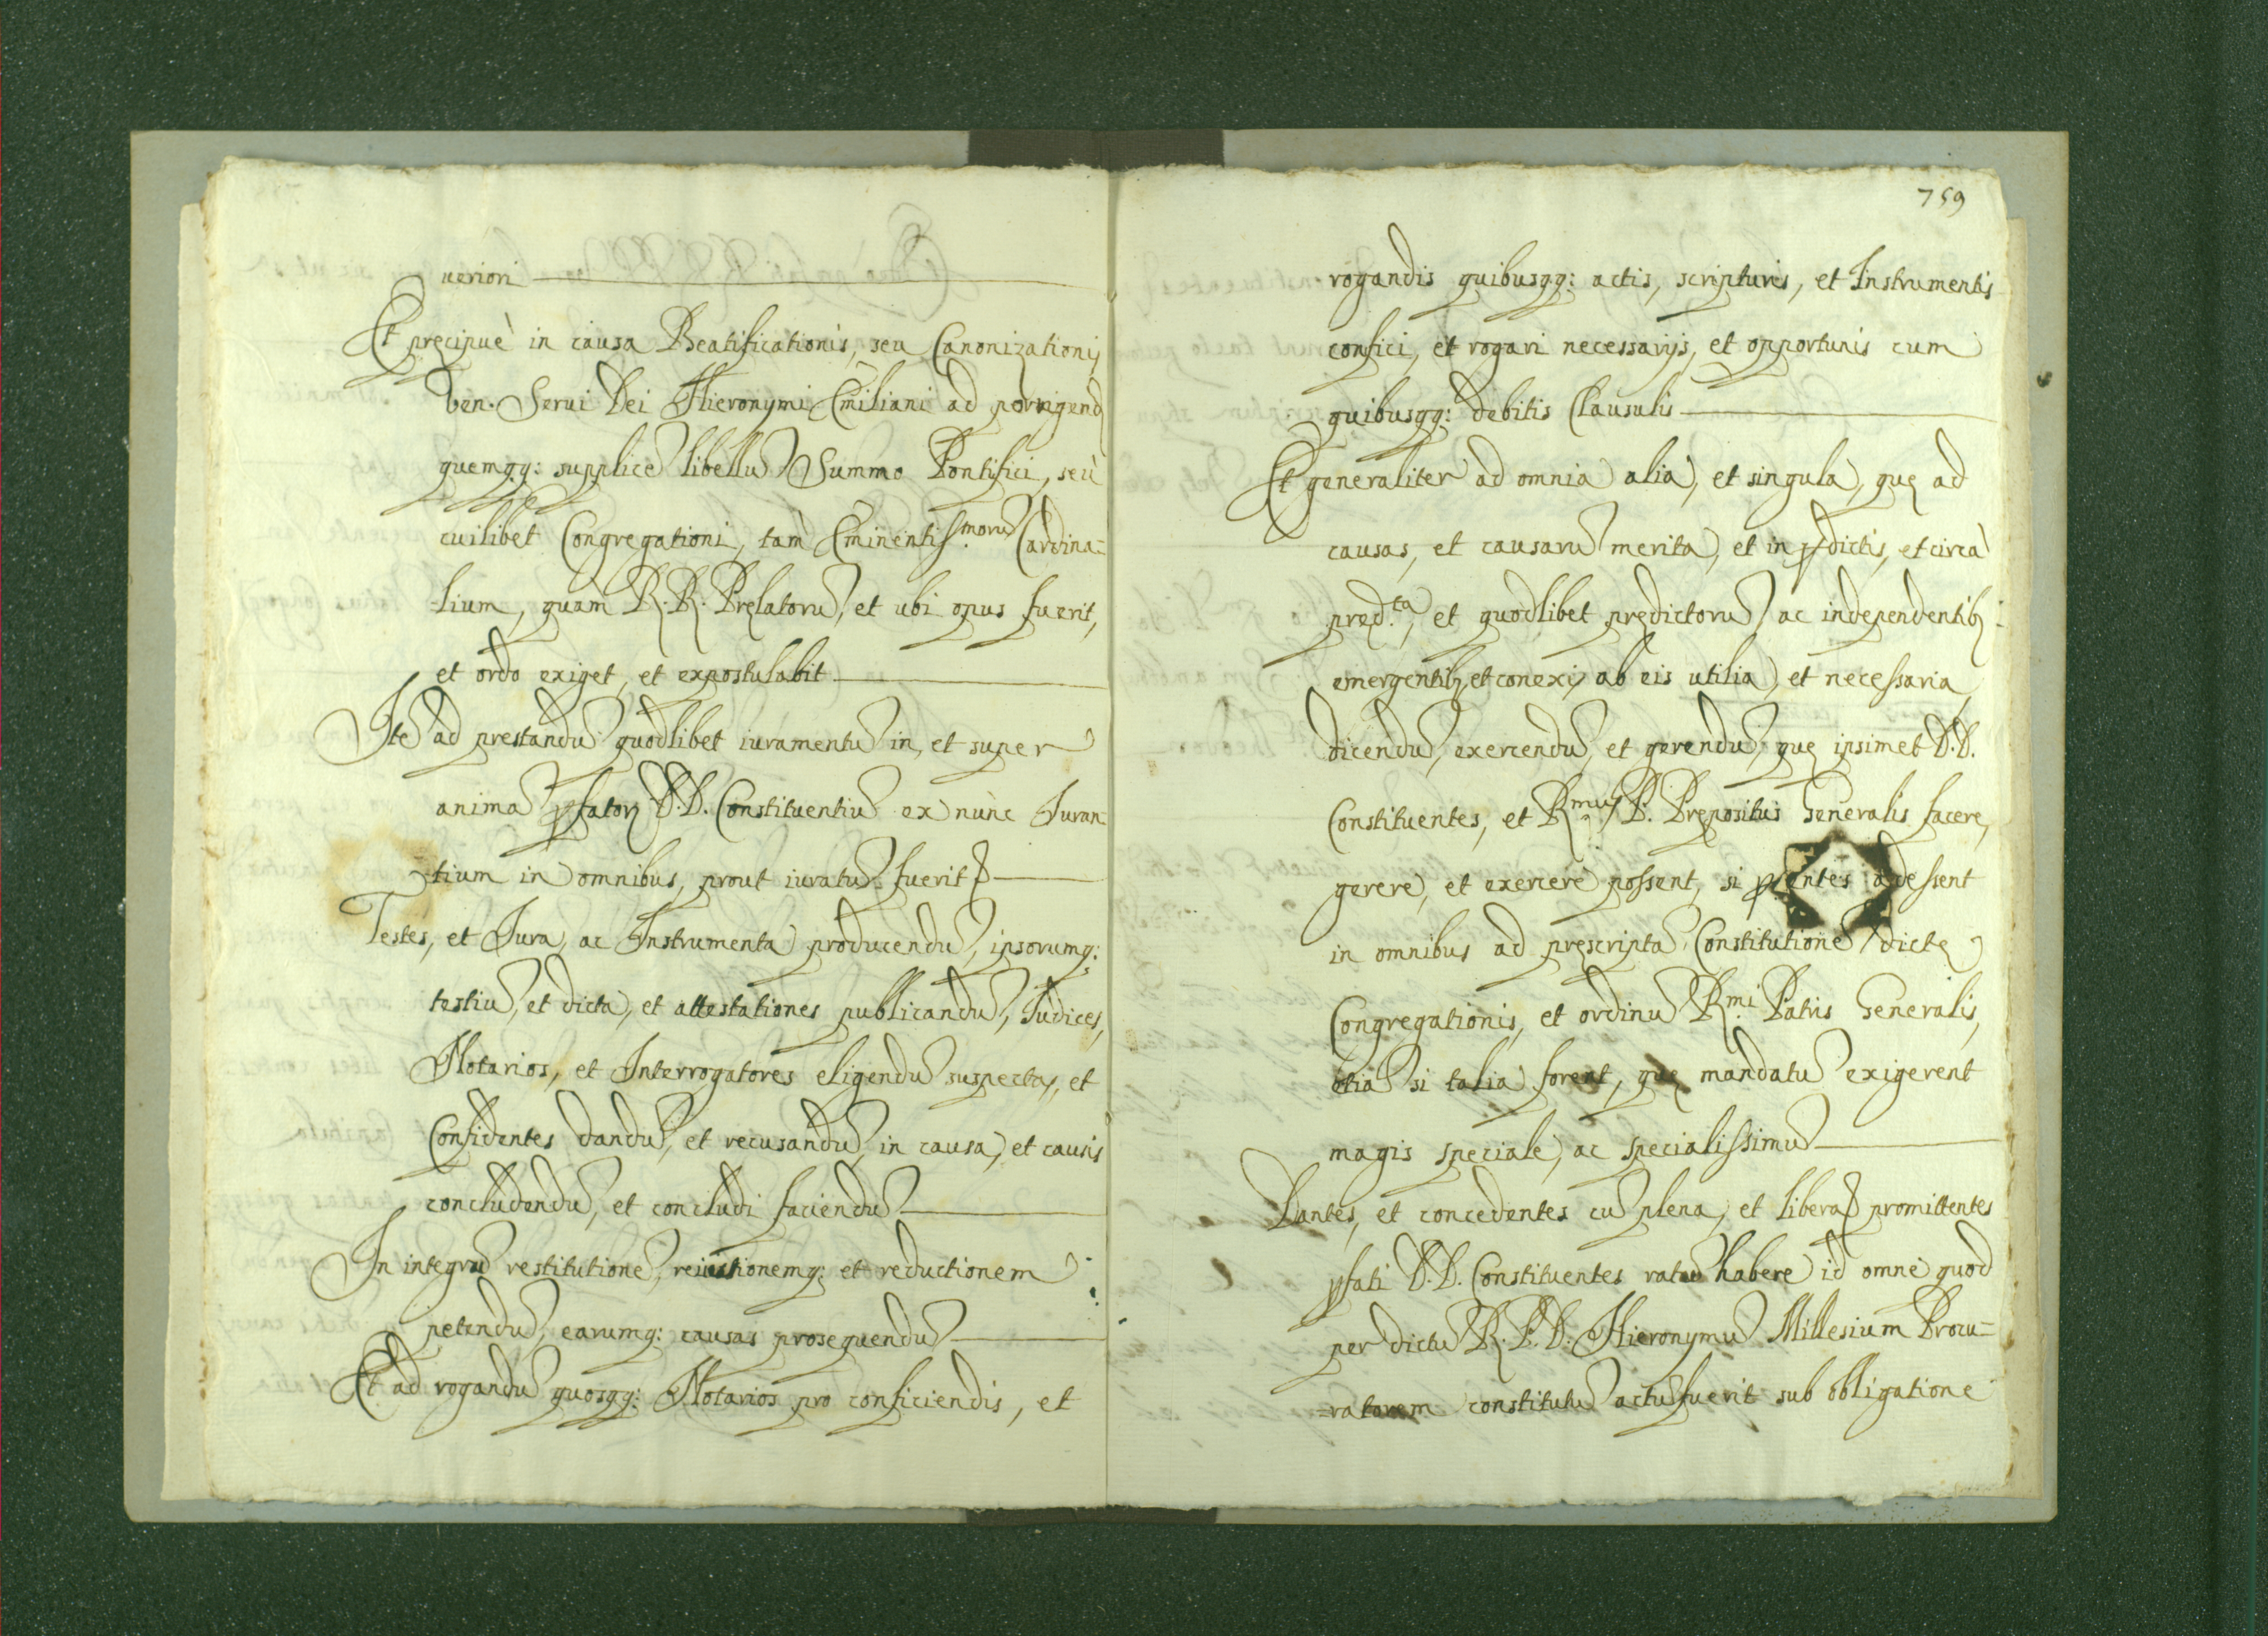 ueriori
Et precipuè in causa Beatificationis, seu Canonizationis
ven. Serui Dei Hieronymi Emiliani ad porrigend
quemqq: supplicē libellū Summo Pontifici, seù
cuilibet Congregationi, tam Eminentiss.morū Cardina=
lium, quam R.R. Prelatorū, et ubi opus fuerit,
et ordo exiget, et expostulabit
Itē ad prestandū quodlibet iuramentū in, et super
animā pfatorʒ D.D. Constituentiū ex nùnc Iuran=
tium in omnibus, prout iuratū fuerit
Testes, et Iura, ac Instrumenta producendū, ipsorumq:
testiū, et dicta, et attestationes publicandū, Iudices,
Notarios, et Interrogatores eligendū suspectos, et
Confidentes dandū, et recusandū, in causa, et causis
concludendū, et concludi faciendū
In integrū restitutionē, reiectionemq: et reductionem
petendū, earumq: causas prosequendū
Et ad rogandū quosqq: Notarios pro conficiendis, et
759
rogandis quibusqq: actis, scripturis, et Instrumentis
confici, et rogari necessarijs, et opportunis cum
quibusqq: debitis Clausulis
Et generaliter ad omnia alia, et singula, que ad
causas, et causarū merita, et in pdictis, et circa
pred.ta, et quodlibet predictorū, ac independentibʒ:
emergentibʒ, et conexis ab eis utilia, et necessaria
dicendū, exercendū, et gerendū, que ipsimet D.D.
Constituentes, et R.mus P. Prepositus Generalis facere,
gerere, et exercere possent, si pſentes adessent
in omnibus ad prescriptā Constitutionē dicte
Congregationis, et ordinū R.mi Patris Generalis,
etiā si talia forent, que mandatū exigerent
magis speciale, ac specialissimū
Dantes, et concedentes cū plena, et libera promittentes
pfati D.D. Constituentes ratū habere id omne quod
per dictū R.P.D. Hieronymū Millesium Procu=
ratorem constitutū actū fuerit sub obligatione